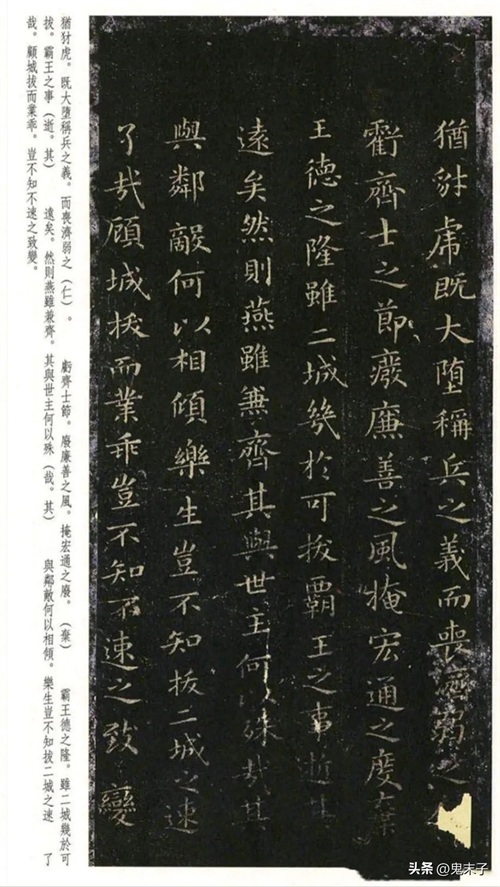 猶豺虎既大墮稱兵之義而喪濟弱之
虧齊士之節廢廉善之風掩宏通之度棄
王德之隆雖二城幾於可拔霸王之事逝其
遠矣然則燕雖兼齊其與世主何以殊哉其
與鄰敵何以相傾樂生豈不知拔二城之速
了哉顧城拔而業乖豈不知不速之致變
猶犲虎。既大墮稱兵之義。而喪濟弱之(仁)。 虧齊士節。廢廉善之風。掩宏通之廢。(棄) 霸王德之隆。雖二城幾於可
拔。霸王之事(逝。其) 遠矣。然則燕雖兼齊。其與世主何以殊(哉。其) 與鄰敵何以相傾。樂生豈不知拔二城之速 了
哉。顧城拔而業乖。豈不知不速之致變。
头条 @鬼末子